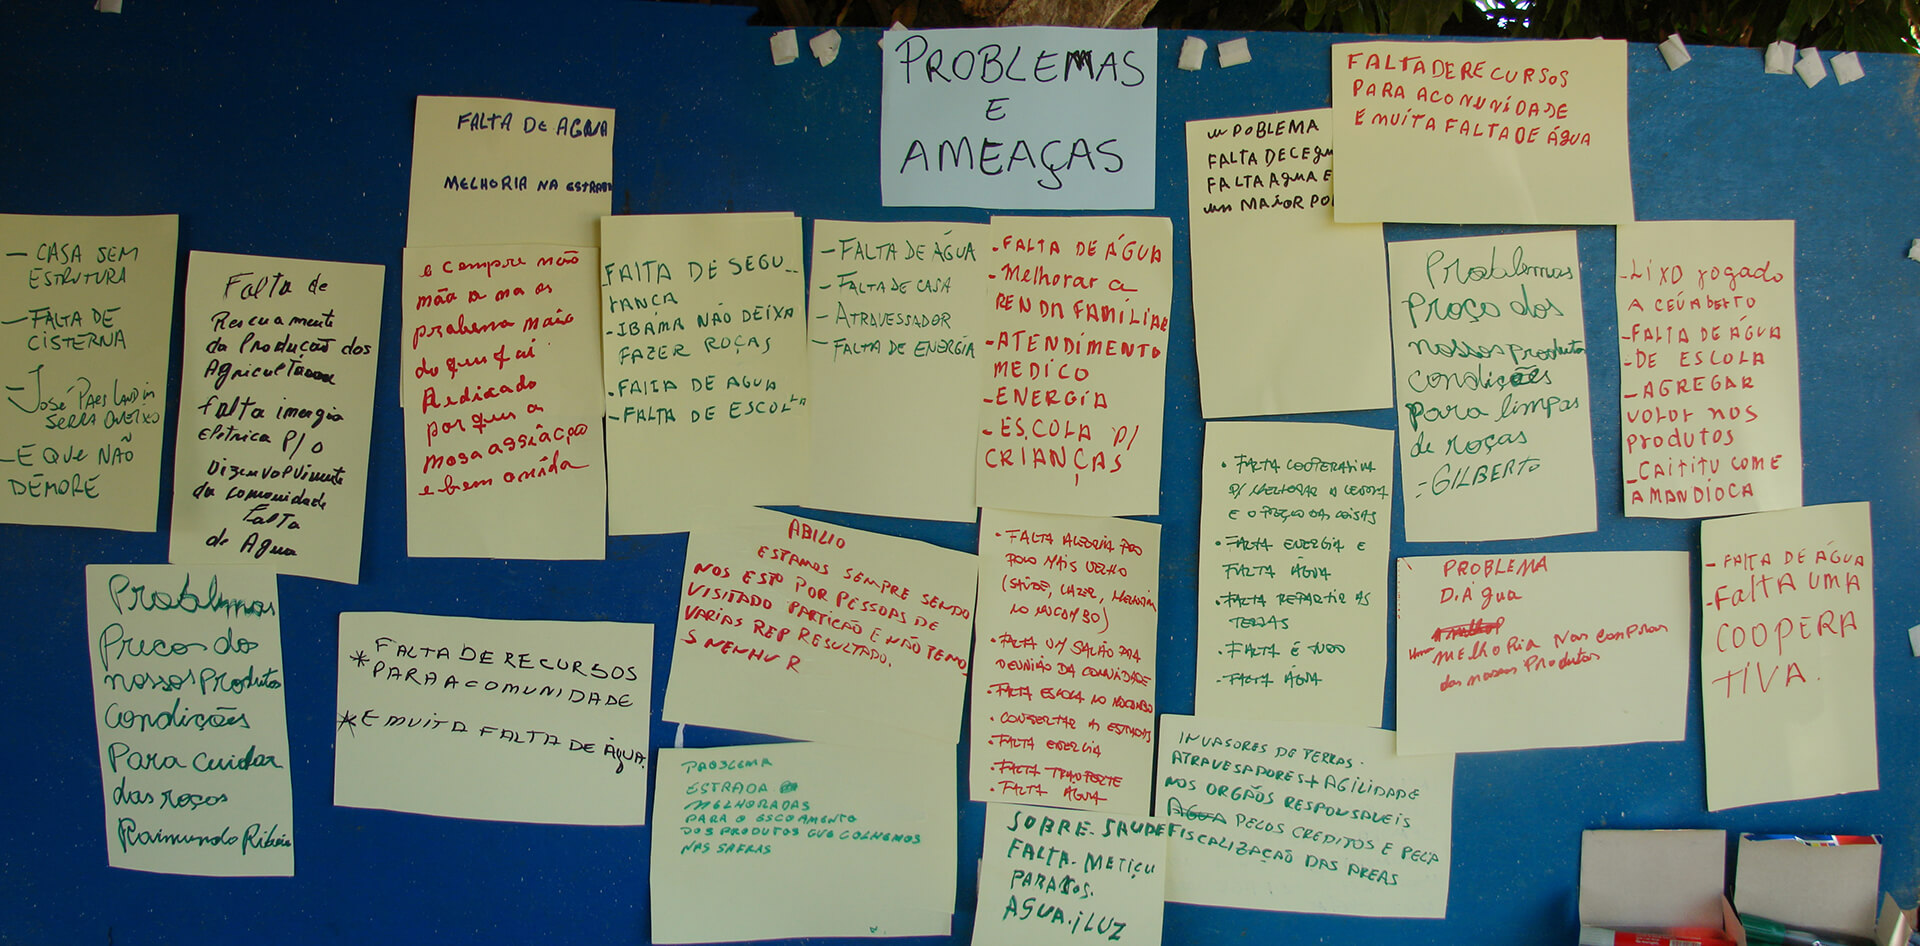 PROBLEMAS
E
AMEAÇAS
FALTA DE AGUA
MELHORIA NA ESTRADA
UM POBLEMA
FALTA DECEGU
FALTA AGUA E
UM MAIOR PO
FALTA DE RECURSOS
PARA ACONUNIDADE
E MUITA FALTA DE ÁGUA
- CASA SEM
ESTRUTURA
- FALTA DE
CISTERNA
- JOSÉ PAES LANDIN
SERRA QUEIXO
- E QUE NÃO
DEMORE
Falta de
Rescuamente
da Produção dos
falta inergia
eletrica P/ O
Dizenvolvimente
da comunidade
Falta
de Agua
e cempre não
mão a ma os
problema maio
do que fai
Redicado
por que a
mosa assiação
e bem onida
FALTA DE SEGU-
RANÇA
- IBAMA NÃO DEIXA
FAZER ROÇAS
- FALTA DE AGUA
- FALTA DE ESCOLA
- FALTA DE ÁGUA
- FALTA DE CASA
- ATRAVESSADOR
- FALTA DE ENERGIA
- FALTA DE ÁGUA
- Melhorar a
RENDA FAMÍLIAR
- ATENDIMENTO
MEDICO
- ENERGIA
- ESCOLA P/
CRIANÇAS
Problemas
Preço dos
nossos produtos
condições
para limpas
de roças
- GILBERTO
- LIXO jogado
A CEÚABERTO
- FALTA DE ÁGUA
- DE ESCOLA
- AGREGAR
VOLOR NOS
PRODUTOS
- CAITITU COME
A MANDIOCA
• FALTA COOPERATIVA
P/ MELHORAR A LAVOURA
E O PREÇO DAS COISAS
• FALTA ENERGIA E
FALTA AGUA
• FALTA REPARTIR AS
TERRAS
• FALTA É TUDO
• FALTA ÁGUA
Problemas
Precos dos
nossos Produtos
Condições
Para cuidar
das roços
Raimundo Ribeiro
* FALTA DE RECURSOS
PARA A COMUNIDADE
* E MUITA FALTA DE ÁGUA.
ABILIO
ESTAMOS SEMPRE SENDO
NOS ESTO POR PESSOAS DE
VISITADO PARTICÃO E NÃO TEMO
VARIAS REP RESULTADO.
S NENHUR
• FALTA ALEGRIA PRO
POVO MAIS VELHO
(SAÚDE, LAZER, MELHORIA
NO MOCAMBO)
• FALTA UM SALÃO PRA
REUNIÃO DA COMUNIDADE
• FALTA ESCOLA NO MOCAMBO
• CONSERTAR AS ESTRADAS
• FALTA ENERGIA
• FALTA TRANSPORTE
• FALTA ÁGUA
PROBLEMA
D.Água
MELHORIA Nas compras
dos nossos Produtos
- FALTA DE ÁGUA
- FALTA UMA
COOPERA
TIVA.
PROBLEMA
ESTRADA
MELHORADAS
PARA O ESCOAMENTO
DOS PRODUTOS QUE COLHEMOS
NAS SAFRAS
INVASORES DE TERRAS.
ATRAVESADORES + AGILIDADE
NOS ORGÃOS RESPONSAVEIS
AGUA PELOS CREDITOS E PELA
FISCALIZAÇÃO DAS AREAS
SOBRE. SAUDE
FALTA. METICU
PARA NOS.
AGUA. i LUZ